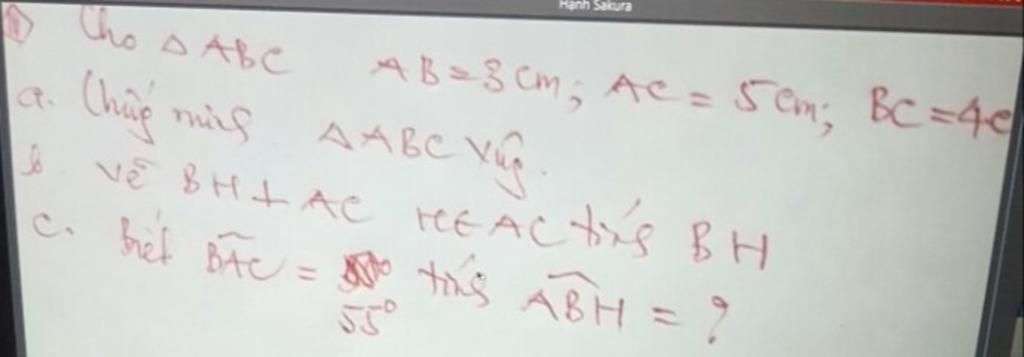 Hạnh Sakura
1) Cho △ ABC AB = 3 cm; AC = 5 cm; BC = 4c
a. Chứng minh △ABC vuông.
b vẽ BH ⊥ AC H∈ AC tính BH
c. biết BAC = 55° tính ABH = ?